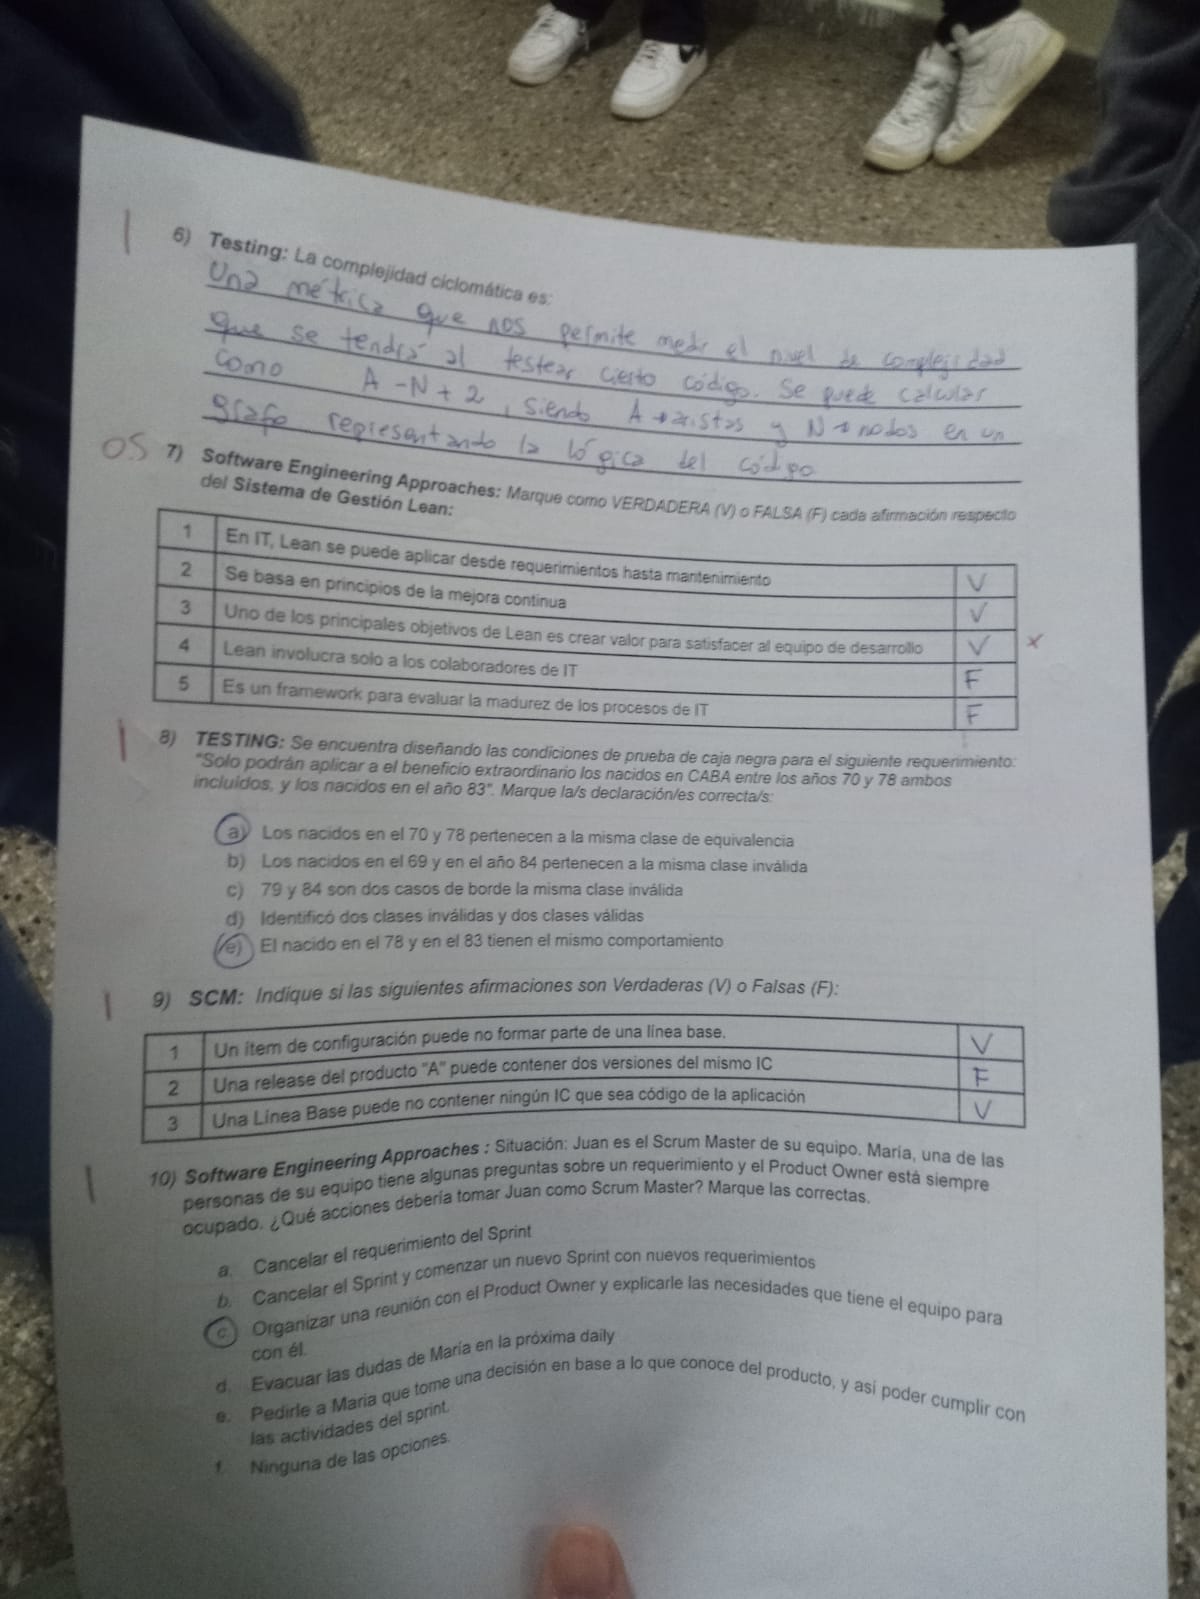 1
6) Testing: La complejidad ciclomática es:
Una métrica que nos permite medir el nivel de complejidad
que se tendrá al testear cierto código. Se puede calcular
como A - N + 2, siendo A → aristas y N → nodos en un
grafo representando la lógica del código
0.5 7) Software Engineering Approaches: Marque como VERDADERA (V) o FALSA (F) cada afirmación respecto
del Sistema de Gestión Lean:
1 En IT, Lean se puede aplicar desde requerimientos hasta mantenimiento V
2 Se basa en principios de la mejora continua V
3 Uno de los principales objetivos de Lean es crear valor para satisfacer al equipo de desarrollo V x
4 Lean involucra solo a los colaboradores de IT F
5 Es un framework para evaluar la madurez de los procesos de IT F
1 8) TESTING: Se encuentra diseñando las condiciones de prueba de caja negra para el siguiente requerimiento:
"Solo podrán aplicar a el beneficio extraordinario los nacidos en CABA entre los años 70 y 78 ambos
incluídos, y los nacidos en el año 83". Marque la/s declaración/es correcta/s:
a) Los nacidos en el 70 y 78 pertenecen a la misma clase de equivalencia
b) Los nacidos en el 69 y en el año 84 pertenecen a la misma clase inválida
c) 79 y 84 son dos casos de borde la misma clase inválida
d) Identificó dos clases inválidas y dos clases válidas
e) El nacido en el 78 y en el 83 tienen el mismo comportamiento
1 9) SCM: Indique si las siguientes afirmaciones son Verdaderas (V) o Falsas (F):
1 Un ítem de configuración puede no formar parte de una línea base. V
2 Una release del producto "A" puede contener dos versiones del mismo IC F
3 Una Línea Base puede no contener ningún IC que sea código de la aplicación V
1 10) Software Engineering Approaches : Situación: Juan es el Scrum Master de su equipo. María, una de las
personas de su equipo tiene algunas preguntas sobre un requerimiento y el Product Owner está siempre
ocupado. ¿Qué acciones debería tomar Juan como Scrum Master? Marque las correctas.
a. Cancelar el requerimiento del Sprint
b. Cancelar el Sprint y comenzar un nuevo Sprint con nuevos requerimientos
c. Organizar una reunión con el Product Owner y explicarle las necesidades que tiene el equipo para
con él.
d. Evacuar las dudas de María en la próxima daily
e. Pedirle a María que tome una decisión en base a lo que conoce del producto, y así poder cumplir con
las actividades del sprint.
f. Ninguna de las opciones.